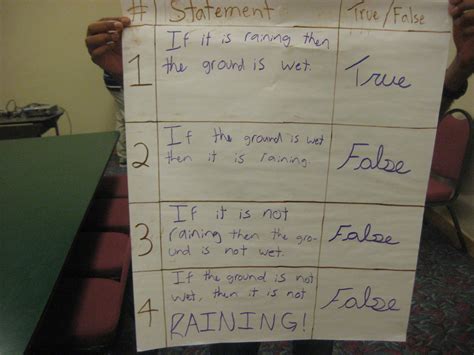 # Statement True/False
1 If it is raining then
the ground is wet. True
2 If the ground is wet
then it is raining. False
3 If it is not
raining then the gro-
und is not wet. False
4 If the ground is not
wet, then it is not
RAINING! False